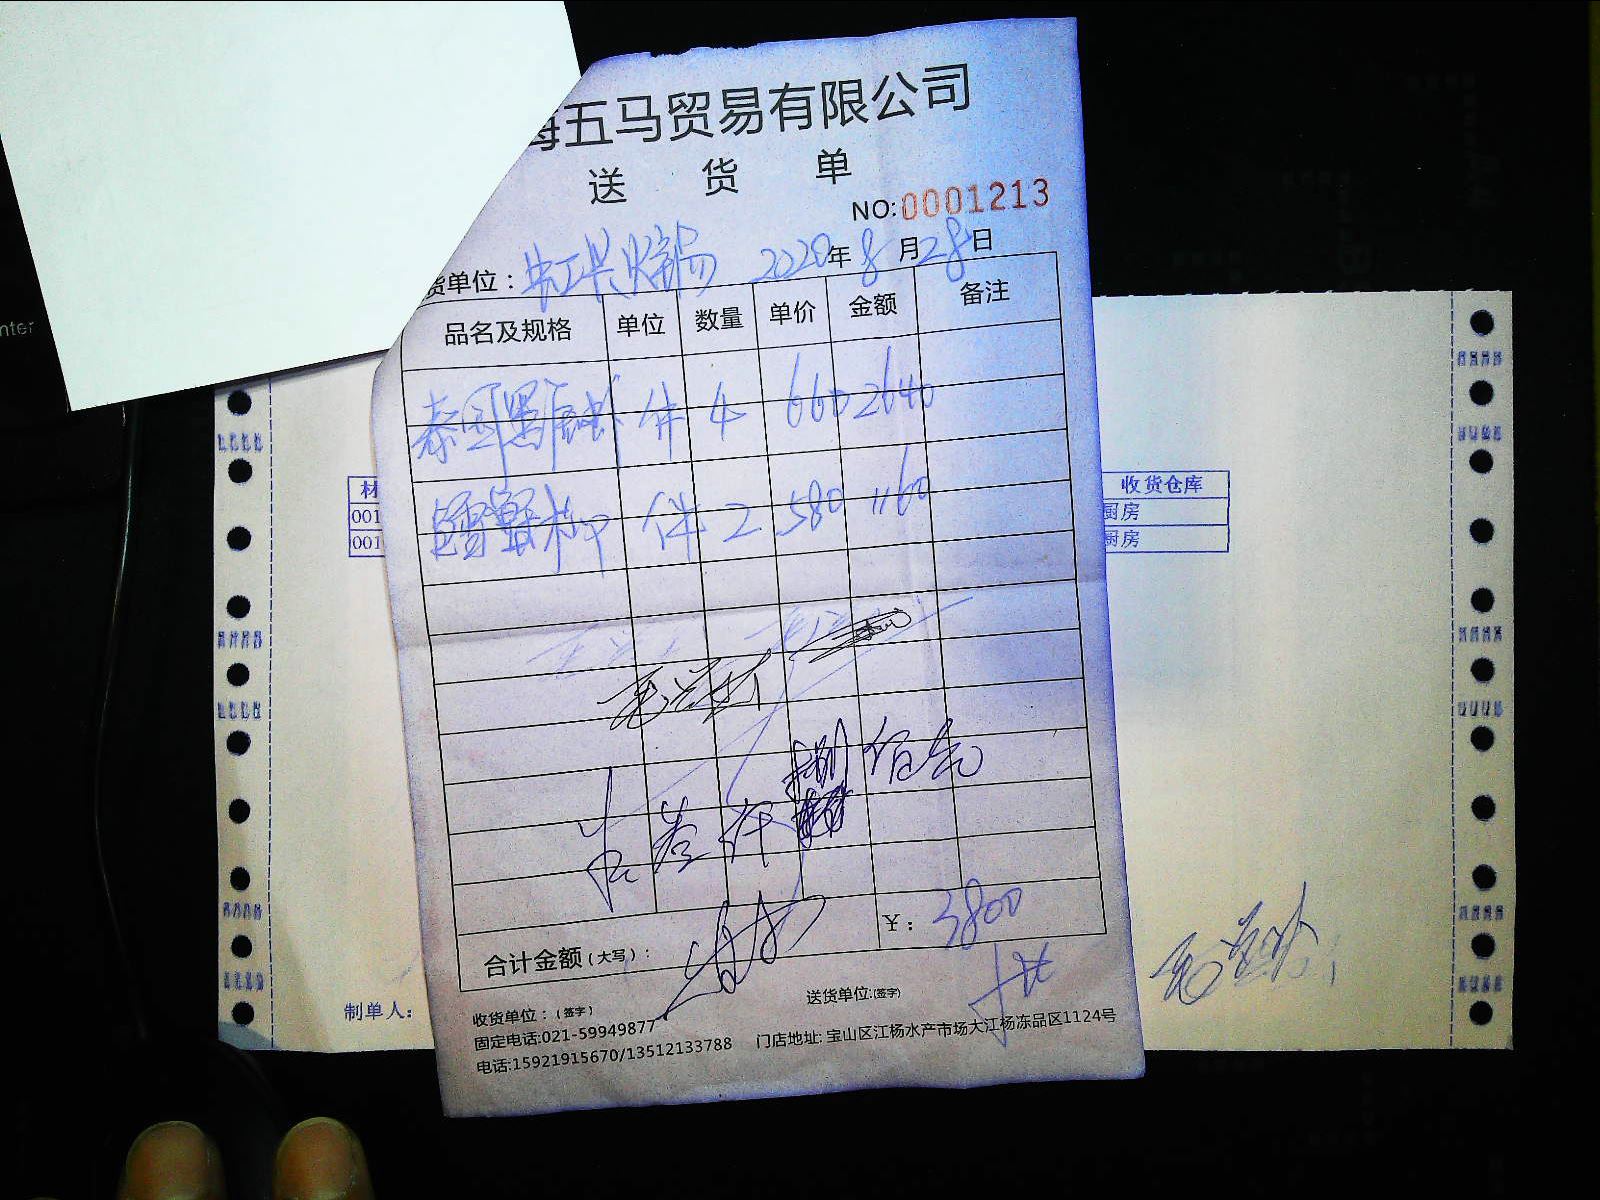 海五马贸易有限公司
送 货 单
NO:0001213
货单位： 2020年8月28日
品名及规格 单位 数量 单价 金额 备注
泰国黑虎虾 件 4 660 2640
件 2 580 1160
捌佰元
叁仟
合计金额(大写)： ¥：3800
收货单位：(签字) 送货单位:(签字)
固定电话:021-59949877
电话:15921915670/13512133788 门店地址:宝山区江杨水产市场大江杨冻品区1124号
材 收货仓库
001 厨房
001 厨房
制单人：
nter